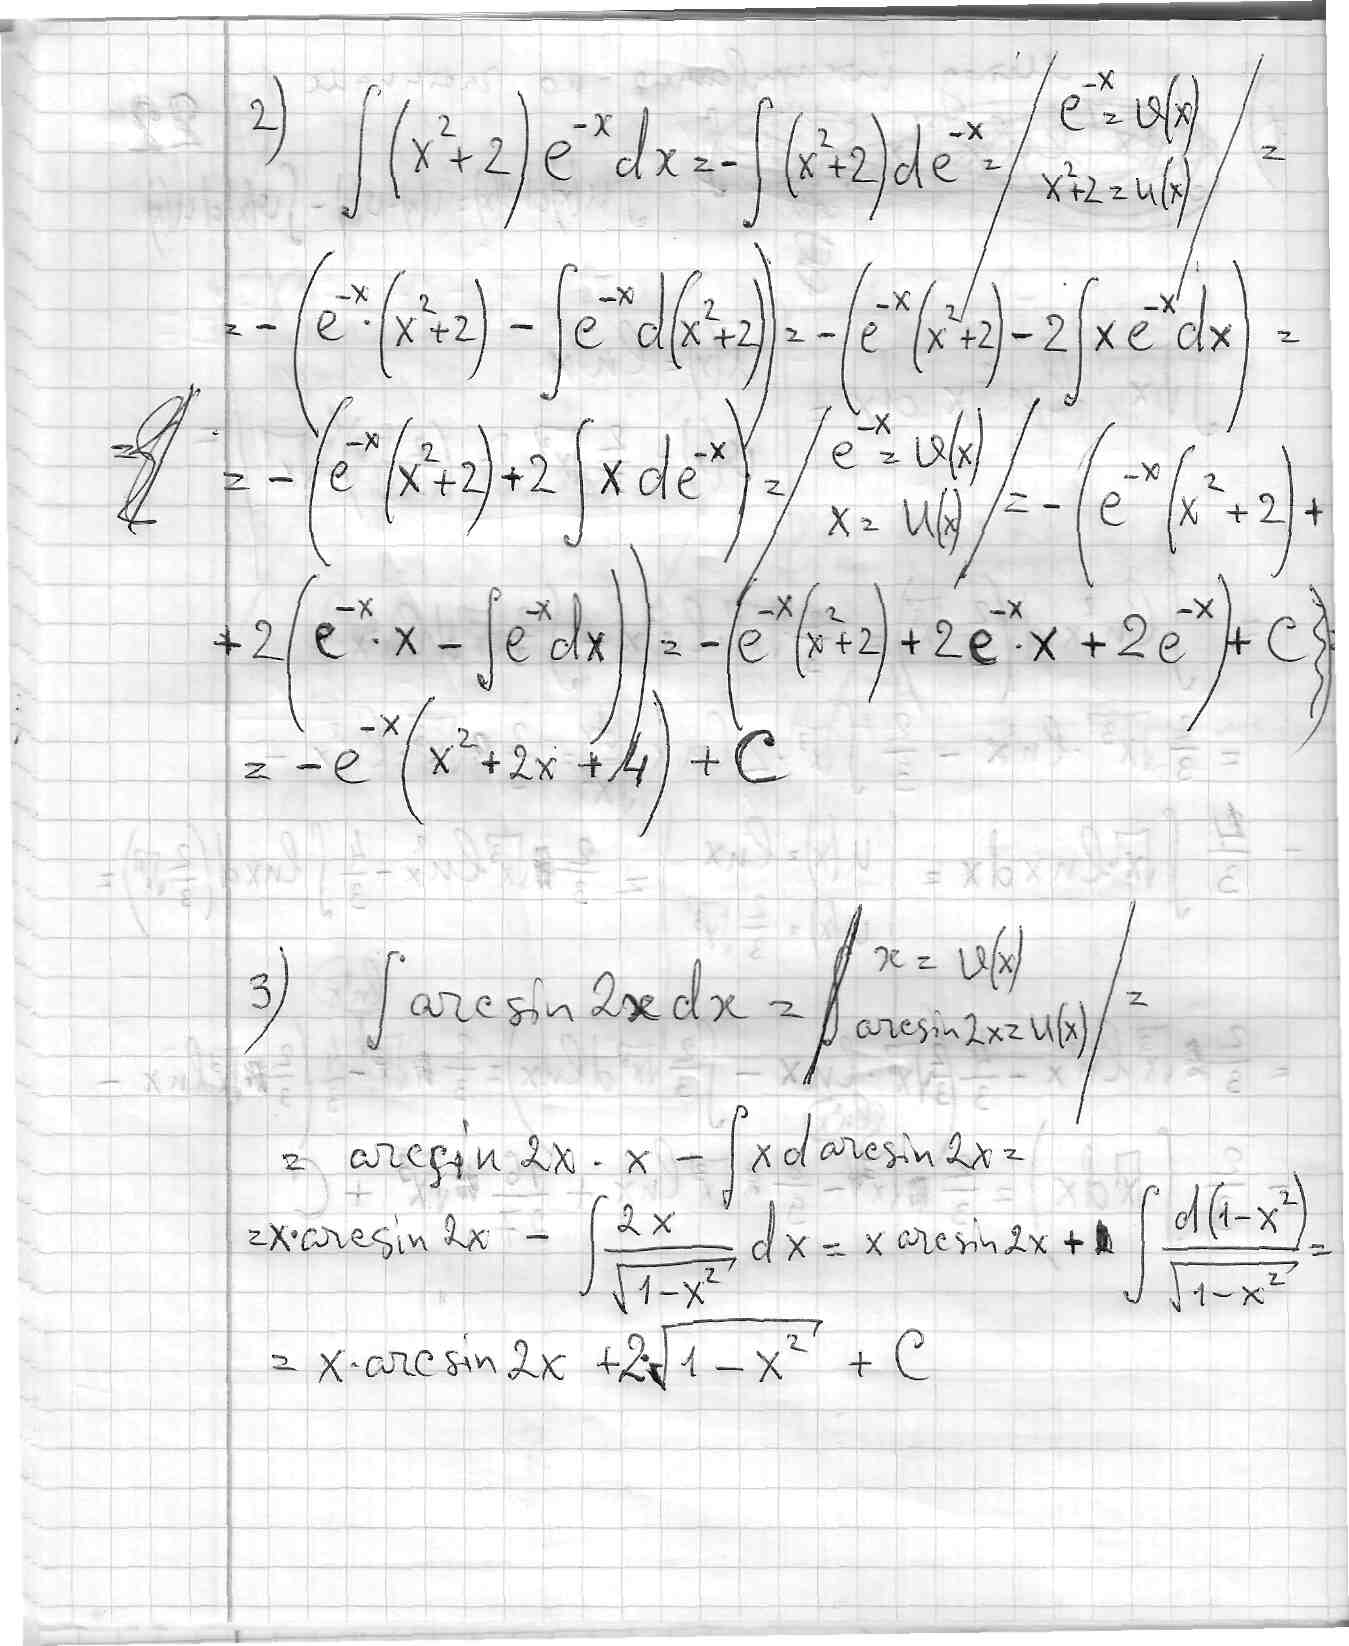 2) ∫(x²+2)e^{-x}dx = -∫(x²+2)de^{-x} = / e^{-x} = v(x) x²+2 = u(x) / =
= -(e^{-x}·(x²+2) - ∫e^{-x}d(x²+2)) = -(e^{-x}(x²+2) - 2∫xe^{-x}dx) =
= -(e^{-x}(x²+2)+2∫x de^{-x}) = / e^{-x} = v(x) x = u(x) / = -(e^{-x}(x²+2)+
+2(e^{-x}·x - ∫e^{-x}dx)) = -(e^{-x}(x²+2)+2e^{-x}·x+2e^{-x})+C =
= -e^{-x}(x²+2x+4)+C
3) ∫arcsin2x dx = / x = v(x) arcsin2x = u(x) / =
= arcsin 2x · x - ∫x d arcsin 2x =
= x·arcsin 2x - ∫ 2x/√(1-x²) dx = x arcsin2x + ∫ d(1-x²)/√(1-x²) =
= x·arcsin 2x + 2·√(1-x²) + C